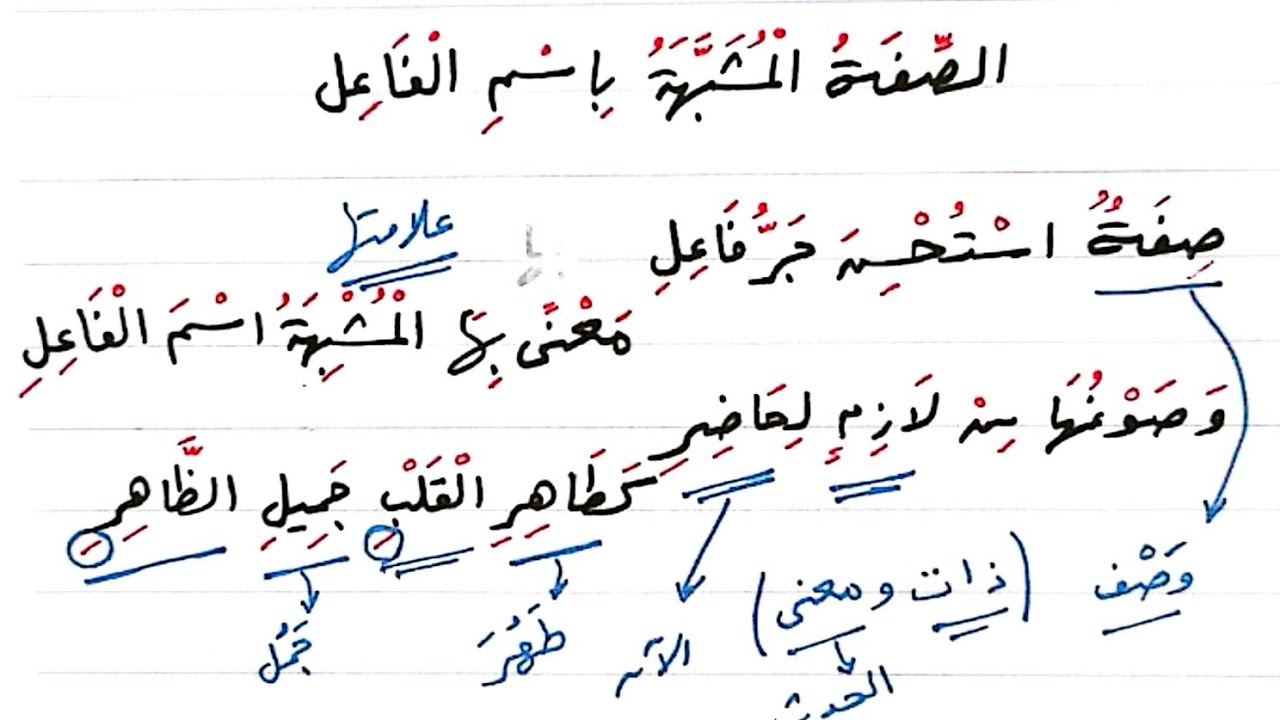 الصِّفَةُ الْمُشَبَّهَةُ بِاسْمِ الْفَاعِلِ
صِفَةٌ اسْتُحْسِنَ جَرُّ فَاعِلِ
علامتها
مَعْنًى بِهَا الْمُشْبِهَةُ اسْمَ الْفَاعِلِ
وَصَوْغُهَا مِنْ لَازِمٍ لِحَاضِرِ
كَطَاهِرِ الْقَلْبِ جَمِيلِ الظَّاهِرِ
وَصْف (ذات ومعنى)
الآن
طَهُرَ
جَمُل
الحدث